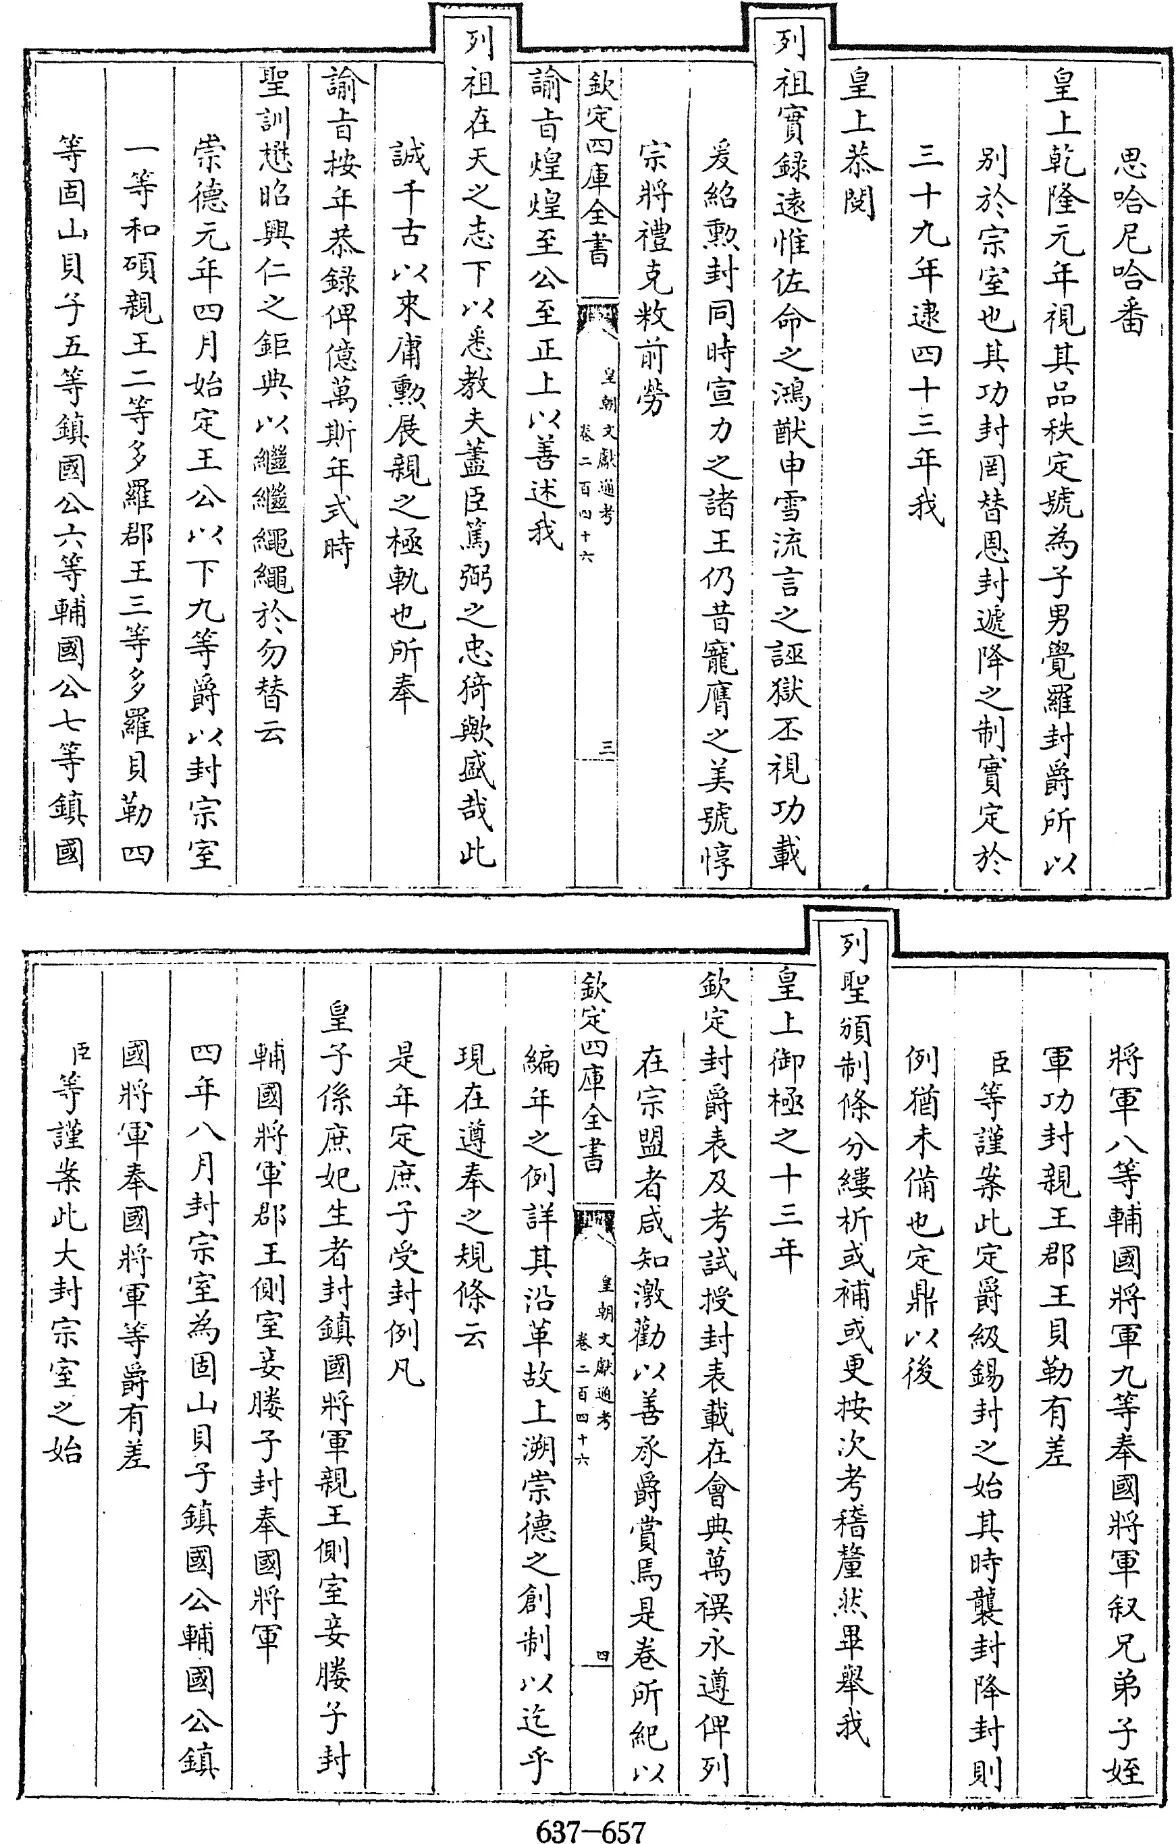 思哈尼哈番
皇上乾隆元年視其品秩定號為子男覺羅封爵所以
别於宗室也其功封罔替恩封遞降之制實定於
三十九年逮四十三年我
皇上恭閱
列祖實録遠惟佐命之鴻猷申雪流言之誣獄丕視功載
爰紹勲封同時宣力之諸王仍昔寵膺之美號惇
宗將禮克敉前勞
欽定四庫全書
皇朝文獻通考
卷二百四十六
三
諭旨煌煌至公至正上以善述我
列祖在天之志下以悉教夫藎臣篤弼之忠猗歟盛哉此
誠千古以來庸勲展親之極軌也所奉
諭旨按年恭録俾億萬斯年式時
聖訓懋昭興仁之鉅典以繼繼繩繩於勿替云
崇德元年四月始定王公以下九等爵以封宗室
一等和碩親王二等多羅郡王三等多羅貝勒四
等固山貝子五等鎮國公六等輔國公七等鎮國
將軍八等輔國將軍九等奉國將軍叙兄弟子姪
軍功封親王郡王貝勒有差
臣等謹案此定爵級錫封之始其時襲封降封則
例猶未備也定鼎以後
列聖頒制條分縷析或補或更按次考稽釐然畢舉我
皇上御極之十三年
欽定封爵表及考試授封表載在會典萬禩永遵俾列
在宗盟者咸知激勸以善承爵賞焉是卷所紀以
欽定四庫全書
皇朝文獻通考
卷二百四十六
四
編年之例詳其沿革故上溯崇德之創制以迄乎
現在遵奉之規條云
是年定庶子受封例凡
皇子係庶妃生者封鎮國將軍親王側室妾媵子封
輔國將軍郡王側室妾媵子封奉國將軍
四年八月封宗室為固山貝子鎮國公輔國公鎮
國將軍奉國將軍等爵有差
臣等謹案此大封宗室之始
637-657